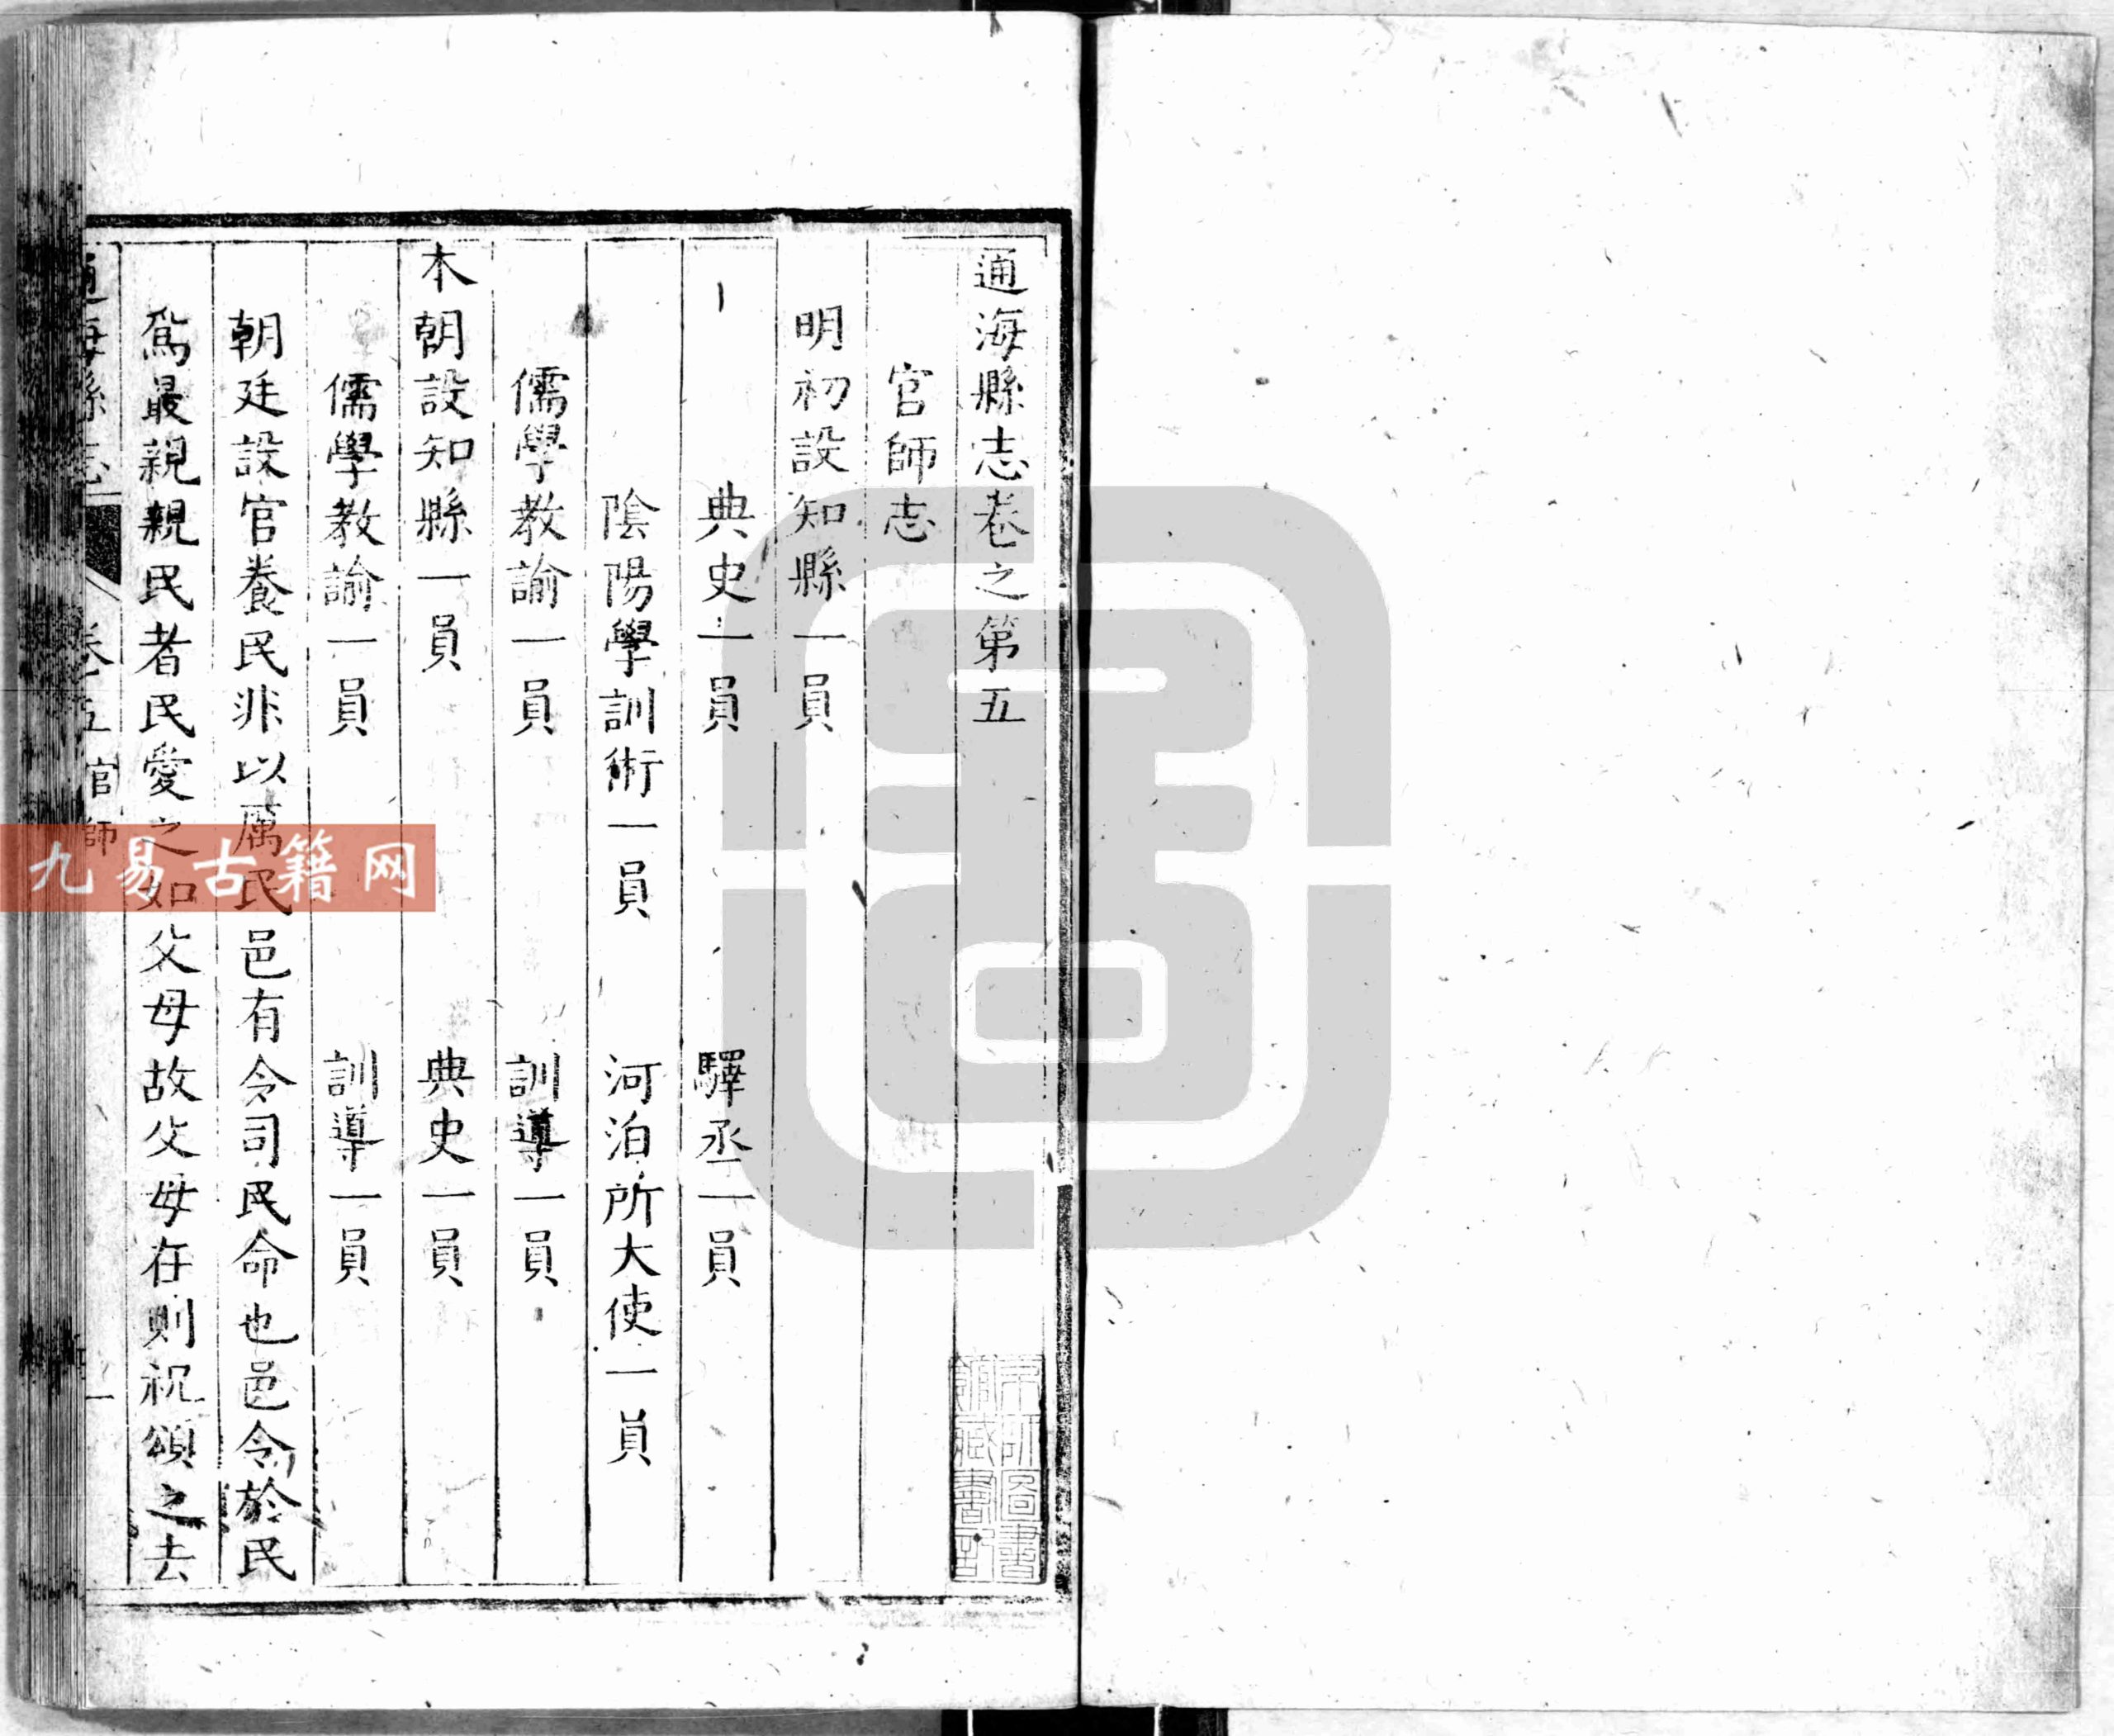 通海縣志卷之第五
官師志
明初設知縣一員
典史一員 驛丞一員
陰陽學訓術一員 河泊所大使一員
儒學教諭一員 訓導一員
本朝設知縣一員 典史一員
儒學教諭一員 訓導一員
朝廷設官養民非以厲民邑有令司民命也邑令於民
爲最親親民者民愛之如父母故父母在則祝頌之去
通海縣志 卷五官師 一
京師圖書
館藏書記
九易古籍网